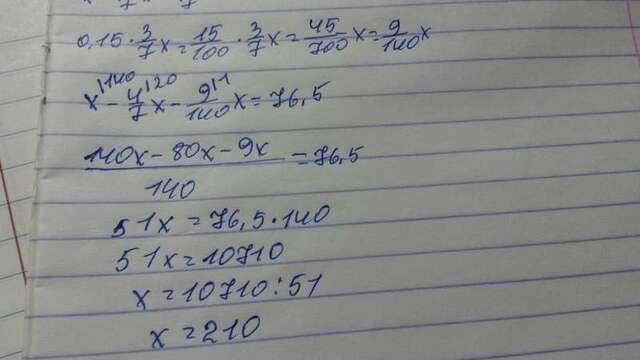 0,15 · 3/7 x = 15/100 · 3/7 x = 45/700 x = 9/140 x
x|140 - 4|20/7 x - 9|1/140 x = 76,5
140x - 80x - 9x / 140 = 76,5
51x = 76,5 · 140
51x = 10710
x = 10710 : 51
x = 210